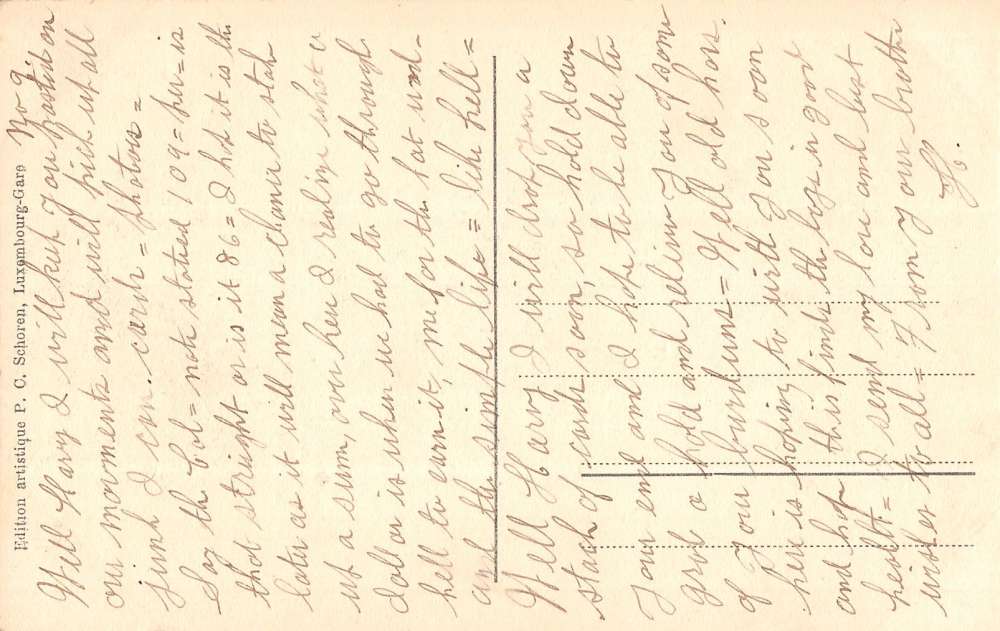 Edition artistique P. C. Schoren, Luxembourg-Gare
No 9
Well Harry I will keep you posted on
our movements and will pick up all
junk I can. carsh = photos =
Say the bol = note stated 109 = per = is
that straight or is it 86 = I hope it is the
later as it will mean a chance to stake
up a sum, over here I realize what a
dollar is when we had to go through
hell to earn it, me for the hat and
and the simple life = like hell =
Well Harry I will drop you a
stack of cards soon, so hold down
your end and I hope to be able to
grab a hold and relieve you of some
of your burdens = Well old hoss.
here is hoping to with you soon
and hope this finds the boys in good
health = I send my love and best
wishes to all = From your brother